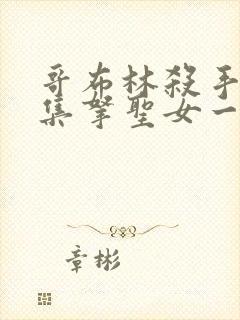 哥布林殺手
集拏聖女一
章彬